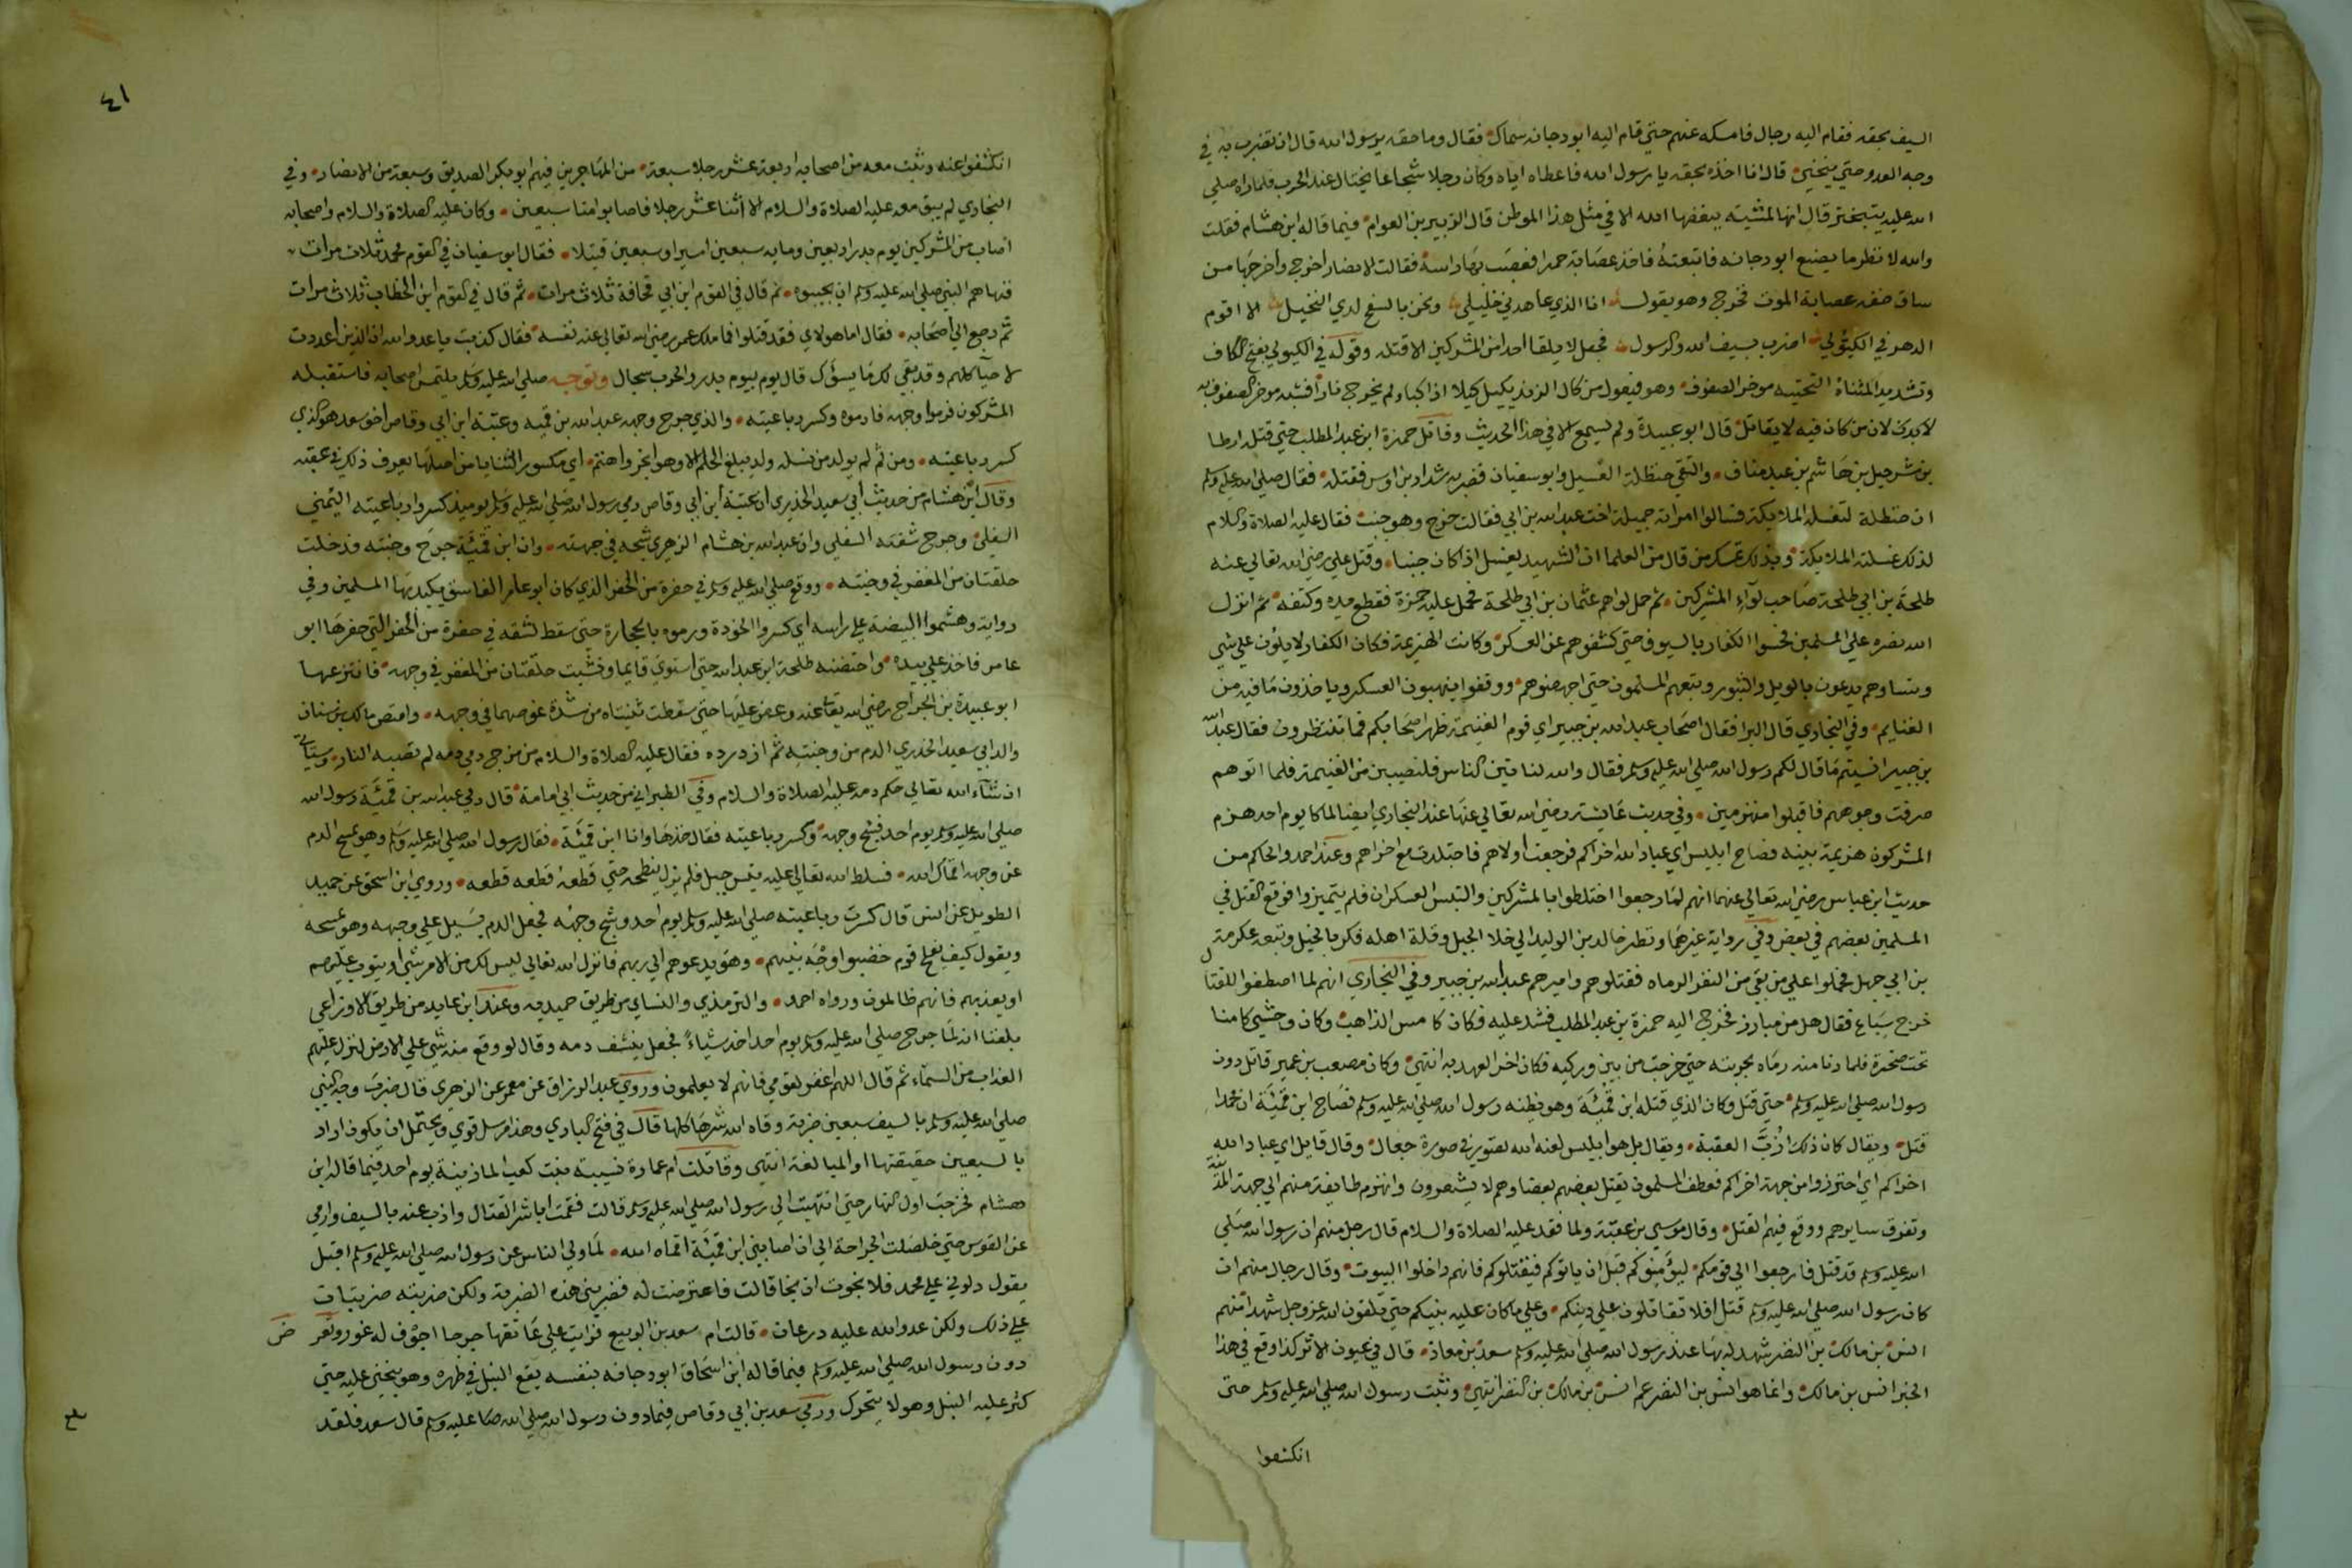 السيف بحقه فقام اليه رجال فامسكه عنهم حتى قام اليه ابو دجانه سماك فقال وما حقه يرسول الله قال ان تضرب به في
وجه العدو حتي ينحني قال انا اخذه بحقه يا رسول الله فاعطاه اياه وكان رجلا شجاعا يختال عند الحرب فلما راه صلي
الله عليه يتبختر قال انها لمشية يبغضها الله الا في مثل هذا الموطن قال الزبير بن العوام فيما قاله ابن هشام فقلت
والله لا نظر ما يصنع ابو دجانه فاتبعته فاخذ عصابة حمرا فعصب بها راسه فقالت الانصار اخرج واخرجها من
ساق خفه عصابة الموت فخرج وهو يقول انا الذي عاهدني خليلي ونحن بالسفح لدي النخيل الا اقوم
الدهر في الكيولي اضرب بسيف الله والرسول فجعل لا يلقا احدا من المشركين الا قتله وقوله في الكيولي بفتح الكاف
وتشديد المثناة التحتيه موخر الصفوف وهو فيعول من كال الزند يكيل كيلا اذا كبا ولم يخرج نارا فشبه موخر الصفوف به
لان من كان فيه لا يقاتل قال ابو عبيدة ولم يسمع الا في هذا الحديث وقاتل حمزة ابن عبد المطلب حتي قتل ارطا
بن شرحبيل بن هاشم بن عبد مناف والتقي حنظلة الغسيل وابو سفيان فضربه شداد بن اوس فقتله فقال صلي الله عليه وسلم
ان حنظلة لتغسله الملايكة فسالوا امراته جميلة اخت عبد الله بن ابي فقالت خرج وهو جنب فقال عليه الصلاة والسلام
لذلك غسلته الملايكة وبذلك تمسك من قال من العلما ان الشهيد يغسل اذا كان جنبا وقتل علي رضي الله تعالي عنه
طلحة بن ابي طلحة صاحب لواء المشركين ثم حمل لواهم عثمان بن ابي طلحة فحمل عليه حمزة فقطع يده وكتفه ثم انزل
الله نصره علي المسلمين فحسوا الكفار بالسيوف حتي كشفوهم عن العسكر وكانت الهزيمة فكان الكفار لا يلون علي شي
ونساوهم يدعون بالويل والثبور وتبعهم المسلمون حتي اجهضوهم ووقفوا ينهبون العسكر وياخذون ما فيه من
الغنايم وفي البخاري قال البرا فقال اصحاب عبد الله بن جبير اي قوم الغنيمة ظهر اصحابكم فما تنتظرون فقال عبد الله
بن جبير انسيتم ما قال لكم رسول الله صلي الله عليه وسلم فقال والله لناتين الناس فلنصيبن من الغنيمة فلما اتوهم
صرفت وجوههم فاقبلوا منهزمين وفي حديث عايشة رضي الله تعالي عنها عند البخاري ايضا لما كا يوم احد هزم
المشركون هزيمة بينه فصاح ابليس اي عباد الله اخراكم فرجعت اولاهم فاجتلدت مع اخراهم وعند احمد والحاكم من
حديث ابن عباس رضي الله تعالي عنهما انهم لما رجعوا اختلطوا بالمشركين والتبس العسكران فلم يتميزوا فوقع القتل في
المسلمين بعضهم في بعض وفي رواية غيرهما ونظر خالد بن الوليد الي خلا الجبل وقلة اهله فكر بالخيل وتبعه عكرمة
بن ابي جهل فحملوا علي من بقي من النفر الرماه فقتلوهم واميرهم عبد الله بن جبير وفي البخاري انهم لما اصطفوا للقتال
خرج سباع فقال هل من مبارز فخرج اليه حمزة بن عبد المطلب فشد عليه فكان كامس الذاهب وكان وحشي كامنا
تحت صخرة فلما دنا منه رماه بحربته حتي خرجت من بين وركيه فكان اخر العهد به انتهي وكان مصعب بن عمير قاتل دون
رسول الله صلي الله عليه وسلم حتي قتل وكان الذي قتله ابن قميئة وهو يظنه رسول الله صلي الله عليه وسلم فصاح ابن قميئة ان محمدا
قتل ويقال كان ذلك ازب العقبة ويقال بل هوا بليس لعنه الله تصور في صورة جعال وقال قايل اي عباد الله
اخراكم اي احترزوا من جهة اخراكم فعطف المسلمون يقتل بعضهم بعضا وهم لا يشعرون وانهزم طايفة منهم الي جهة المدينة
وتفرق سايرهم ووقع فيهم القتل وقال موسي بن عقبة ولما فقد عليه الصلاة والسلام قال رجل منهم ان رسول الله صلي
الله عليه وسلم قد قتل فارجعوا الي قومكم ليؤمنوكم قبل ان ياتوكم فيقتلوكم فانهم داخلوا البيوت وقال رجال منهم ان
كان رسول الله صلي الله عليه وسلم قتل افلا تقاتلون علي دينكم وعلي ما كان عليه نبيكم حتي تلقون الله عز وجل شهدا منهم
انس بن مالك بن النضر شهد له بها عند رسول الله صلي الله عليه وسلم سعد بن معاذ قال في عيون الاثر كذا وقع في هذا
الخبر انس بن مالك وانما هو انس بن النضر عم انس بن مالك بن النضر انتهي وثبت رسول الله صلي الله عليه وسلم حتي
انكشفوا
٤١
انكشفوا عنه وثبت معه من اصحابه اربعة عشر رجلا سبعة من المهاجرين فيهم ابو بكر الصديق وسبعة من الانصار وفي
البخاري لم يبق معه عليه الصلاة والسلام الا اثنا عشر رجلا فاصابوا منا سبعين وكان عليه الصلاة والسلام واصحابه
اصاب من المشركين يوم بدر اربعين ومايه سبعين اسيرا وسبعين قتيلا فقال ابو سفيان في القوم محمد ثلاث مرات
فنهاهم النبي صلي الله عليه وسلم ان يجيبوه ثم قال في القوم ابن ابي قحافة ثلاث مرات ثم قال في القوم ابن الخطاب ثلاث مرات
ثم رجع الي اصحابه فقال اما هولاي فقد قتلوا فما ملك عمر رضي الله تعالي عنه نفسه فقال كذبت يا عدوا الله ان الذين اعددت
لاحيآ كلهم وقد بقي لك ما يسؤك قال يوم بيوم بدر والحرب سجال وتوجه صلي الله عليه وسلم يلتمس اصحابه فاستقبله
المشركون فرموا وجهه فادموه وكسر رباعيته والذي جرح وجهه عبد الله بن قميه وعتبة ابن ابي وقاص اخو سعد هو الذي
كسر رباعيته ومن ثم لم يولد من نسله ولد يبلغ الحلم الا وهو ابخر واهتم اي مكسور الثنايا من اصلها يعرف ذلك في عقبه
وقال ابن هشام من حديث ابي سعيد الخدري ان عتبة ابن ابي وقاص رمي رسول الله صلي الله عليه وسلم يوميذ كسر رباعيته اليمني
السفلي وجرح شفته السفلي وان عبد الله بن هشام الزهري شجه في جبهته وان ابن قميئة جرح وجنته فدخلت
حلقتان من المغفر في وجنته ووقع صلي الله عليه وسلم في حفرة من الحفر الذي كان ابو عامر الفاسق يكيد بها المسلمين وفي
رواية وهشموا البيضة علي راسه اي كسروا الخوذة ورموه بالحجارة حتي سقط لشقه في حفرة من الحفر التي حفرها ابو
عامر فاخذ علي بيده واحتضنه طلحة ابن عبد الله حتي استوي قايما ونشبت حلقتان من المغفر في وجهه فانتزعها
ابو عبيدة بن الجراح رضي الله تعالي عنه وعض عليها حتي سقطت ثنيتاه من شدة غوصهما في وجهه وامتص مالك بن سنان
والد ابي سعيد الخدري الدم من وجنته ثم ازدرده فقال عليه الصلاة والسلام من مزج دمي دمه لم تصبه النار وسياتي
ان شآء الله تعالي حكم دمه عليه الصلاة والسلام وفي الطبراني من حديث ابي امامة قال رمي عبد الله بن قميئة رسول الله
صلي الله عليه وسلم يوم احد فشج وجهه وكسر رباعيته فقال خذها وانا ابن قميئة فقال رسول الله صلي الله عليه وسلم وهو يمسح الدم
عن وجهه اقماك الله فسلط الله تعالي عليه تيس جبل فلم يزل ينطحه حتي قطعه قطعه قطعه وروي ابن اسحق عن حميد
الطويل عن انس قال كسرت رباعيته صلي الله عليه وسلم يوم احد وشج وجهه فجعل الدم يسيل علي وجهه وهو يمسحه
ويقول كيف يفلح قوم خضبوا وجه نبيهم وهو يدعوهم الي ربهم فانزل الله تعالي ليس لك من الامر شي او يتوب عليهم
او يعذبهم فانهم ظالمون ورواه احمد والترمذي والنساي من طريق حميد به وعند ابن عايد من طريق الاوزاعي
بلغنا انه لما جرح صلي الله عليه وسلم يوم احد اخذ شياء فجعل ينشف دمه وقال لو وقع منه شي علي الارض لنزل عليهم
العذاب من السمآء ثم قال اللهم اغفر لقومي فانهم لا يعلمون وروي عبد الرزاق عن معمر عن الزهري قال ضرب وجه النبي
صلي الله عليه وسلم بالسيف سبعين ضربة وقاه الله شرها كلها قال في فتح الباري وهذا مرسل قوي ويحتمل ان يكون اراد
بالسبعين حقيقتها او المبالغة انتهي وقاتلت ام عمارة نسيبة بنت كعب المازنية يوم احد فيما قاله ابن
هشام فخرجت اول النهار حتي انتهيت الي رسول الله صلي الله عليه وسلم قالت فقمت اباشر القتال واذب عنه بالسيف وارمي
عن القوس حتي خلصت الجراحة الي ان اصابني ابن قميئة اقماه الله لما ولي الناس عن رسول الله صلي الله عليه وسلم اقبل
يقول دلوني علي محمد فلا نجوت ان نجا قالت فاعترضت له فضربني هذه الضربة ولكن ضربته ضربات
علي ذلك ولكن عدو الله عليه درعان قالت ام سعد بن الربيع فرايت علي عاتقها جرحا اجوف له غور وتعر
دون رسول الله صلي الله عليه وسلم فيما قاله ابن اسحاق ابو دجانه بنفسه يقع النبل في ظهره وهو ينحني عليه حتي
كثر عليه النبل وهو لا يتحرك ورمي سعد بن ابي وقاص فيما دون رسول الله صلي الله عليه وسلم قال سعد فلقد